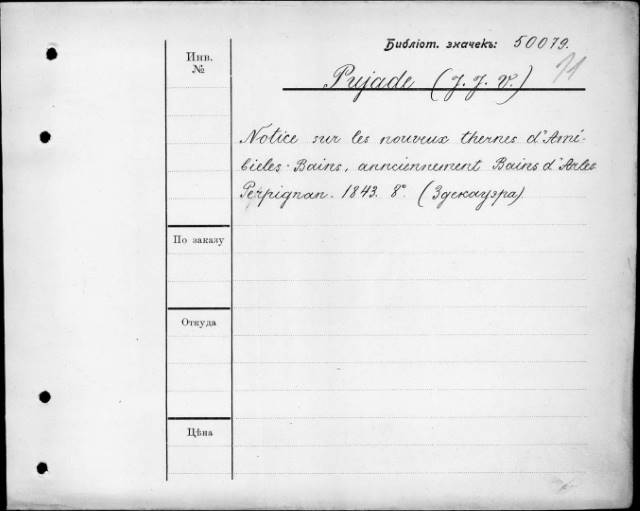 Библіот. значекъ: 50079.
11
Инв.
№
Pujade (J. J. V.)
Notice sur les nouveux thermes d'Amé-
bieles-Bains, annciennement Bains d'Arles
Perpignan. 1843. 8°. (Здекауэра).
По заказу
Откуда
Цѣна